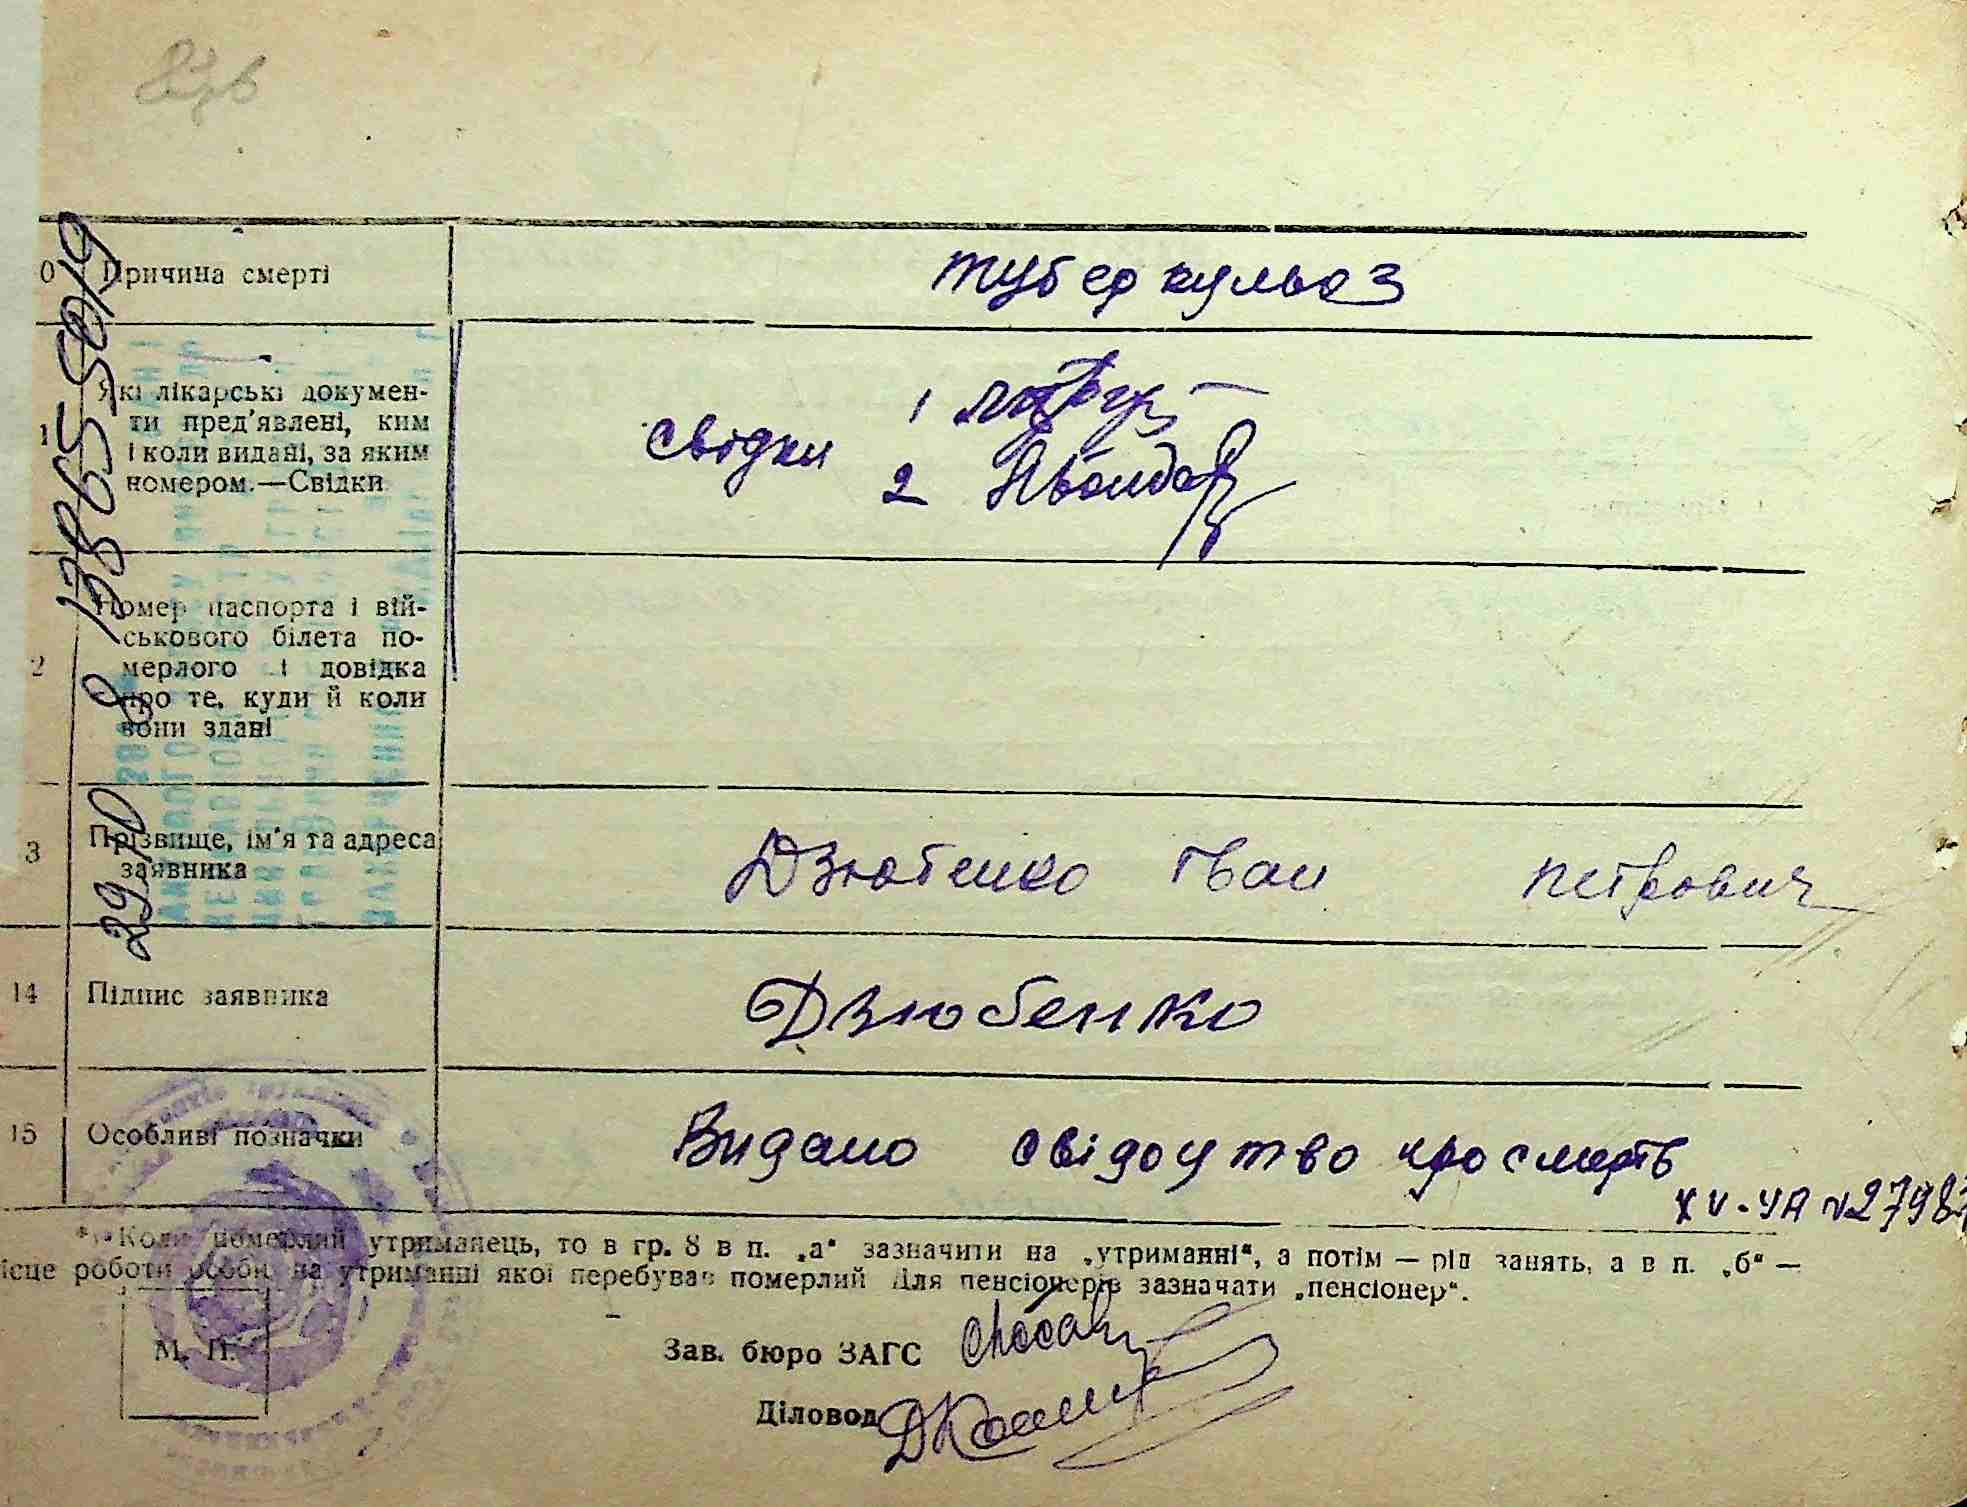 0 Причина смерті туберкульоз
1 Які лікарські докумен-
ти пред'явлені, ким
і коли видані, за яким
номером.—Свідки
свідки 1
2
2 Номер паспорта і вій-
ськового білета по-
мерлого і довідка
про те, куди й коли
вони здані
3 Прізвище, ім'я та адреса
заявника
Дзюбенко Іван Петрович
14 Підпис заявника Дзюбенко
15 Особливі позначки Видано свідоцтво про смерть
XV-УА №2798
*) Коли померлий утриманець, то в гр. 8 в п. „а“ зазначити на „утриманні“, а потім — рід занять, а в п. „б“ —
ісце роботи особи, на утриманні якої перебував померлий Для пенсіонерів зазначати „пенсіонер“.
М. П.
Зав. бюро ЗАГС
Діловод